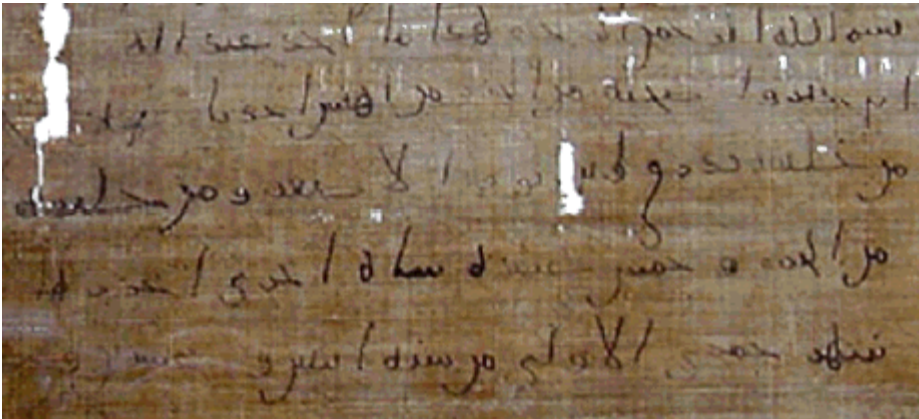 بسم الله الرحمن الرحيم هذا ما اخذ عبد الله
ابن جبر واصحبه من الجزر من اهنس اخذنا
من خليفة تدراق ابن ابو قير الاصغر ومن خليفة
من الجزر وخمس عشرة شاة اخرى اجزرها
شهر جمدى الاولى من سنة اثنين وعشرين